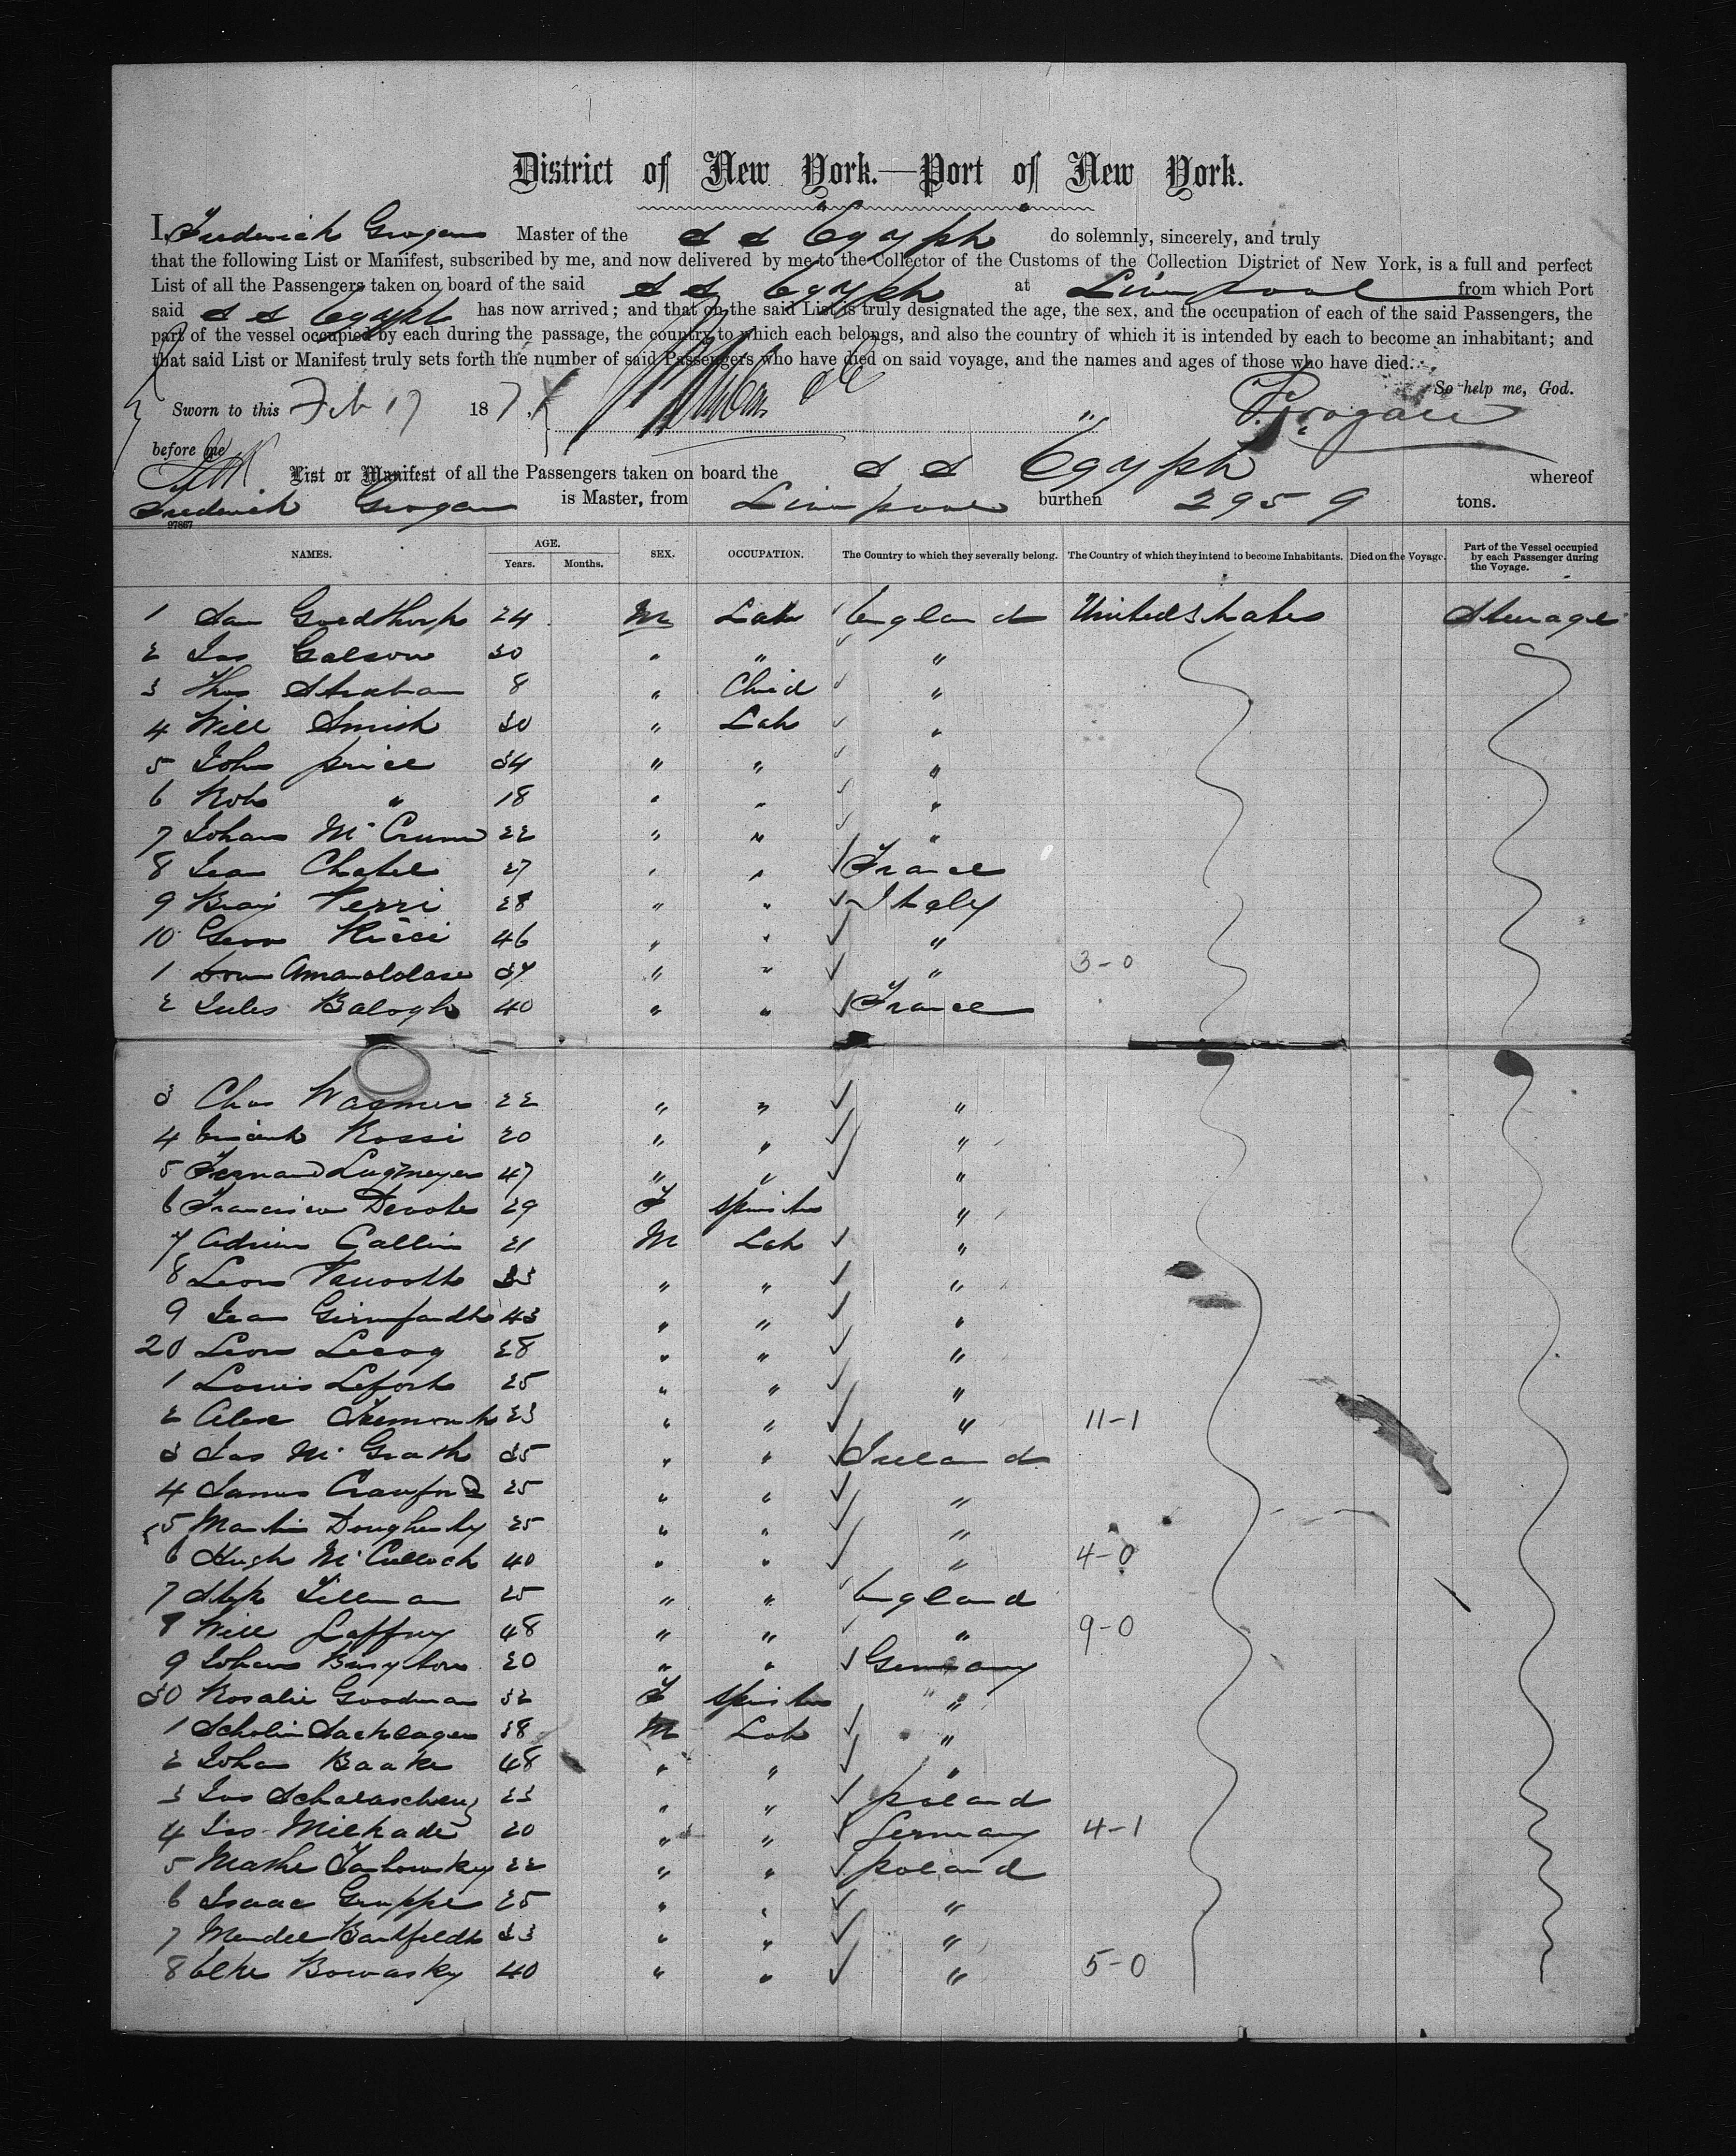 District of New York.—Port of New York.
I, Frederick Grogan Master of the S S Egypt do solemnly, sincerely, and truly
that the following List or Manifest, subscribed by me, and now delivered by me to the Collector of the Customs of the Collection District of New York, is a full and perfect
List of all the Passengers taken on board of the said S S Egypt at Liverpool from which Port
said S S Egypt has now arrived; and that on the said List is truly designated the age, the sex, and the occupation of each of the said Passengers, the
part of the vessel occupied by each during the passage, the country to which each belongs, and also the country of which it is intended by each to become an inhabitant; and
that said List or Manifest truly sets forth the number of said Passengers who have died on said voyage, and the names and ages of those who have died.
So help me, God.
Sworn to this Feb 17 187 F. Grogan
before me
List or Manifest of all the Passengers taken on board the S S Egypt whereof
Frederick Grogan is Master, from Liverpool burthen 2959 tons.
97867
NAMES. AGE. Years. Months. SEX. OCCUPATION. The Country to which they severally belong. The Country of which they intend to become Inhabitants. Died on the Voyage. Part of the Vessel occupied by each Passenger during the Voyage.
1 Sam Goedthorp 24 M Lab England United States Steerage
2 Jas 30 " " "
3 Thos 8 " Child "
4 Will Smith 30 " Lab "
5 John Price 34 " " "
6 Rob " 18 " " "
7 Johan 22 " " "
8 Jean Chatel 27 " " France
9 Verri 28 " " Italy
10 Ricci 46 " " "
1 " " " 3-0
2 Jules Balogh 40 " " France
3 Chas Wasmer 22 " " "
4 Rossi 20 " " "
5 Fernand Lugmeyer 47 " " "
6 Devote 29 F Spinster "
7 Adrien Gallin 21 M Lab "
8 Leon " " "
9 Jean 43 " " "
20 Leon Lecoq 28 " " "
1 Louis Lefort 25 " " "
2 Alex Tremont 23 " " " 11-1
3 Jas McGrath 35 " " Ireland
4 James Crawford 25 " " "
5 Martin Dougherty 25 " " "
6 Hugh McCulloch 40 " " " 4-0
7 Steph Tillman 25 " " England
8 Will Laffrey 48 " " " 9-0
9 Johan 20 " " Germany
30 Rosalie Goodman 32 F Spinster "
1 Sacklager 38 M Lab "
2 Johan Baake 48 " " "
3 Jos 23 " " Poland
4 Jos 20 " " Germany 4-1
5 22 " " Poland
6 Isaac Gruppe 25 " " "
7 Mendel 33 " " "
8 Elke Bowasky 40 " " " 5-0